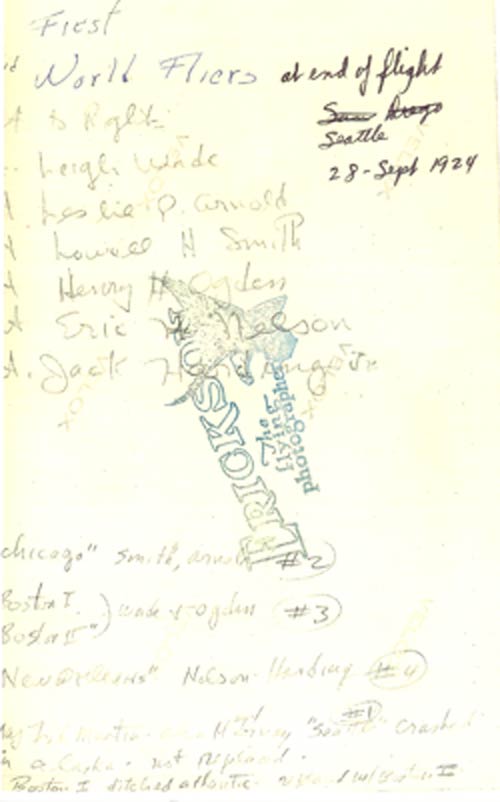 First
World Fliers at end of flight
San Diego
Seattle
28-Sept 1924
Leigh Wade
Leslie P. Arnold
Lowell H Smith
Henry H Ogden
Eric H Nelson
Jack
ERICKSON
The
flying
photographer
chicago" Smith, Arnold #2
Boston I
Boston II" ) Wade & Ogden #3
New Orleans" Nelson-Harding #4
"Seattle" #1 crashed
in Alaska. not replaced.
Boston I ditched atlantic